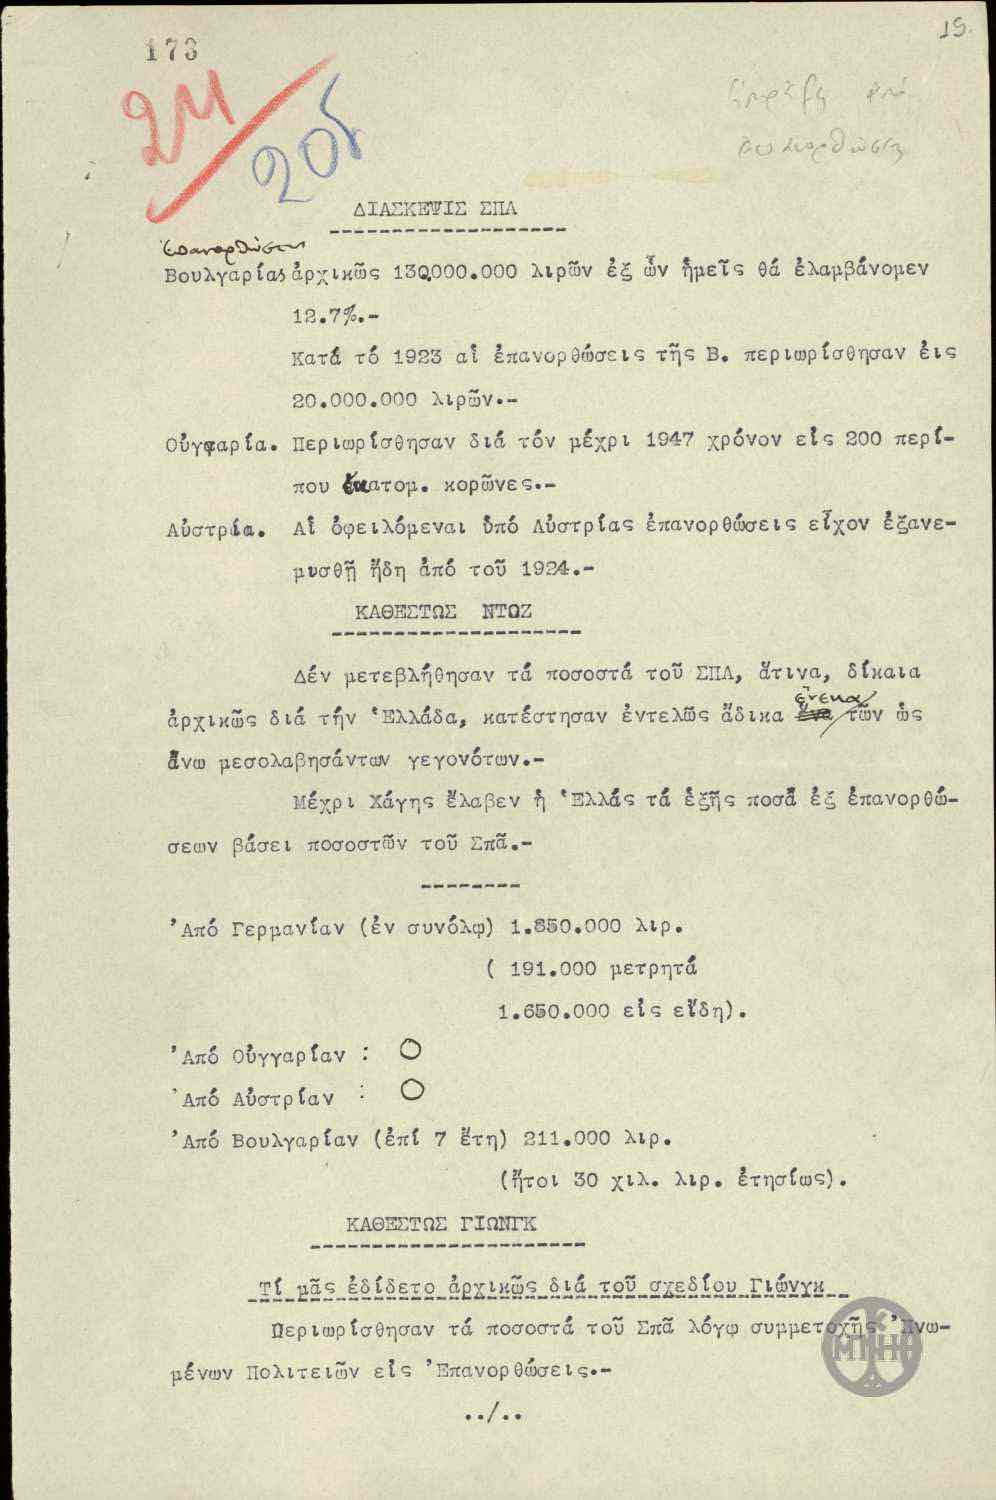 173
19.
24
205
ΔΙΑΣΚΕΨΙΣ ΣΠΑ
Ἐπανορθώσεις
Βουλγαρίας ἀρχικῶς 130.000.000 λιρῶν ἐξ ὧν ἡμεῖς θά ἐλαμβάνομεν
12.7%.-
Κατά τό 1923 αἱ ἐπανορθώσεις τῆς Β. περιωρίσθησαν ἐις
20.000.000 λιρῶν.-
Οὑγγαρία. Περιωρίσθησαν διά τόν μέχρι 1947 χρόνον εἰς 200 περί-
που ἑκατομ. κορῶνες.-
Αὐστρία. Αἱ ὀφειλόμεναι ὑπό Αὐστρίας ἐπανορθώσεις εἶχον ἐξανε-
μισθῇ ἤδη ἀπό τοῦ 1924.-
ΚΑΘΕΣΤΩΣ ΝΤΩΖ
Δέν μετεβλήθησαν τά ποσοστά τοῦ ΣΠΑ, ἅτινα, δίκαια
ἕνεκα
ἀρχικῶς διά τήν Ἑλλάδα, κατέστησαν ἐντελῶς ἄδικα ἕνα τῶν ὡς
ἄνω μεσολαβησάντων γεγονότων.-
Μέχρι Χάγης ἔλαβεν ἡ Ἑλλάς τά ἑξῆς ποσά ἐξ ἐπανορθώ-
σεων βάσει ποσοστῶν τοῦ Σπᾶ.-
Ἀπό Γερμανίαν (ἐν συνόλῳ) 1.850.000 λιρ.
( 191.000 μετρητά
1.650.000 εἰς εἴδη).
Ἀπό Οὑγγαρίαν : 0
Ἀπό Αὐστρίαν : 0
Ἀπό Βουλγαρίαν (ἐπί 7 ἔτη) 211.000 λιρ.
(ἤτοι 30 χιλ. λιρ. ἐτησίως).
ΚΑΘΕΣΤΩΣ ΓΙΩΝΓΚ
Τί μᾶς ἐδίδετο ἀρχικῶς διά τοῦ σχεδίου Γιώνγκ
Περιωρίσθησαν τά ποσοστά τοῦ Σπᾶ λόγῳ συμμετοχῆς Ἡνω-
μένων Πολιτειῶν εἰς Ἐπανορθώσεις.-
../..